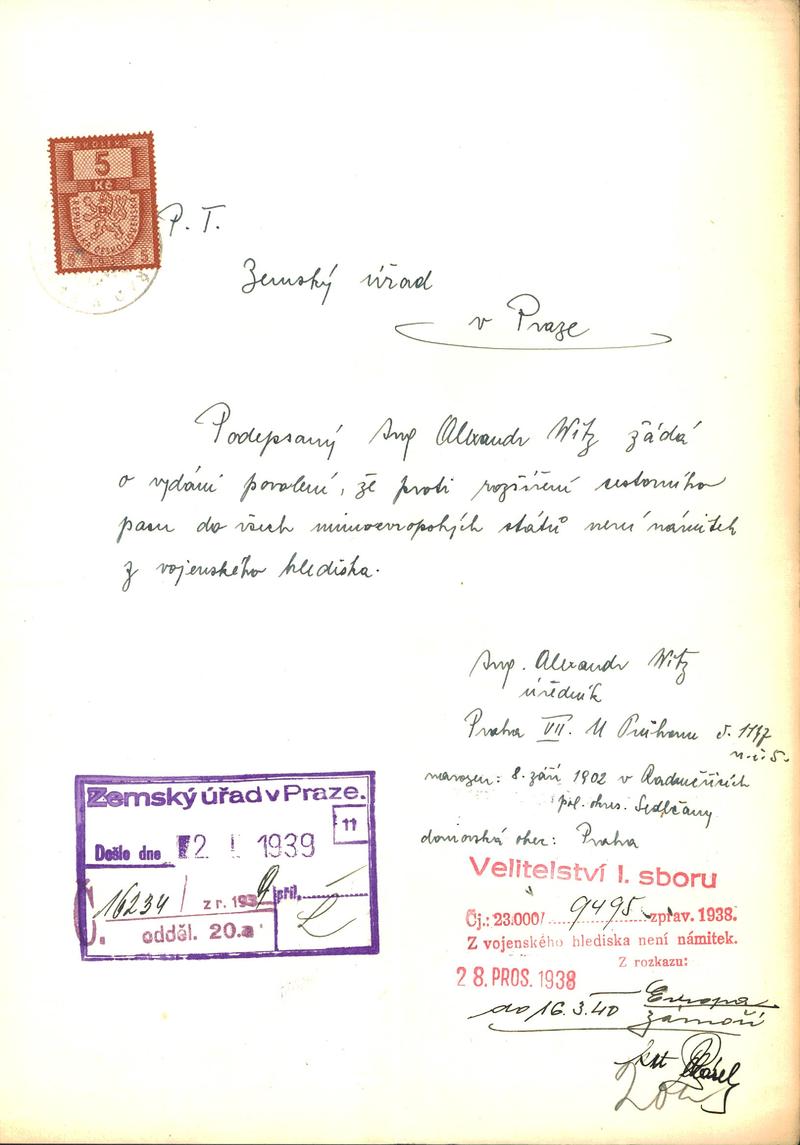 KOLEK
5
Kč
REPUBLIKA ČESKOSLOVENSKÁ
P. T.
Zemský úřad
v Praze
Podepsaný Ing Alexandr Witz žádá
o vydání povolení, že proti rozšíření cestovního
pasu do všech mimoevropských států není námitek
z vojenského hlediska.
Ing. Alexandr Witz
úředník
Praha VII. U Průhonu č. 1147
narozen: 8. září 1902 v
pol. okres. Sedlčany
domovská obec: Praha
Zemský úřad v Praze.
11
Došlo dne 2 I 1939
16234 / z r. 1939 příl.
Č. j. odděl. 20.a
Velitelství I. sboru
Čj.: 23.000/ 9495 zprav. 1938.
Z vojenského hlediska není námitek.
Z rozkazu:
28. PROS. 1938
do 16.3.40 Evropa
zámoří